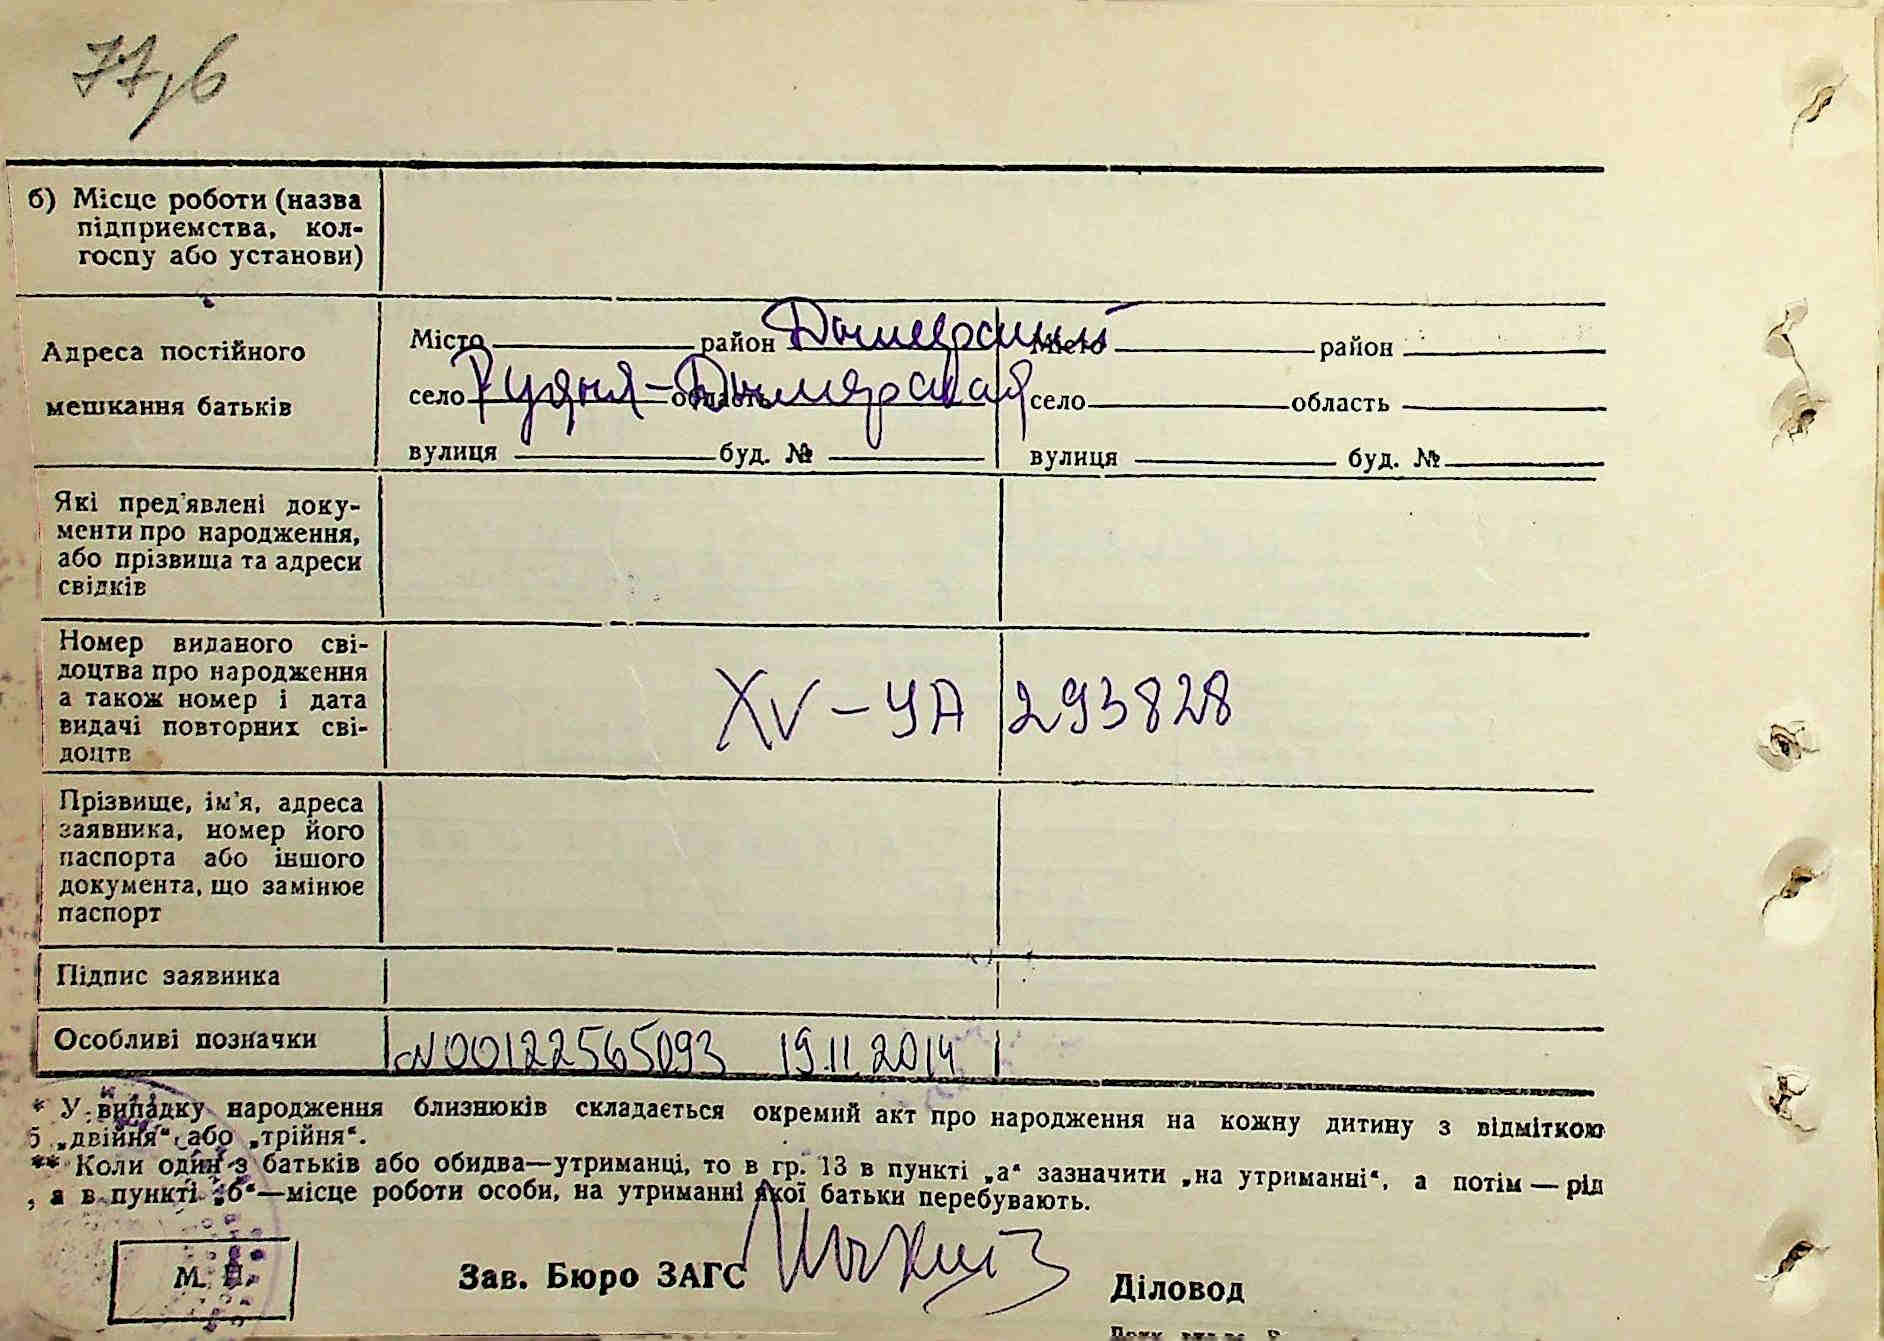 77/б
б) Місце роботи (назва
підприємства, кол-
госпу або установи)
Адреса постійного
мешкання батьків
Місто район Дымерский
село Рудня-Дымерская область
вулиця буд. №
Місто район
село область
вулиця буд. №
Які пред'явлені доку-
менти про народження,
або прізвища та адреси
свідків
Номер виданого сві-
доцтва про народження
а також номер і дата
видачі повторних сві-
доцтв
XV – УА 293828
Прізвище, ім'я, адреса
заявника, номер його
паспорта або іншого
документа, що замінює
паспорт
Підпис заявника
Особливі позначки
N00122565093 19.11.2014
* У випадку народження близнюків складається окремий акт про народження на кожну дитину з відміткою
„двійня“ або „трійня“.
** Коли один з батьків або обидва—утриманці, то в гр. 13 в пункті „а“ зазначити „на утриманні“, а потім — рід
, а в пункті „б“—місце роботи особи, на утриманні якої батьки перебувають.
М. П.
Зав. Бюро ЗАГС
Діловод